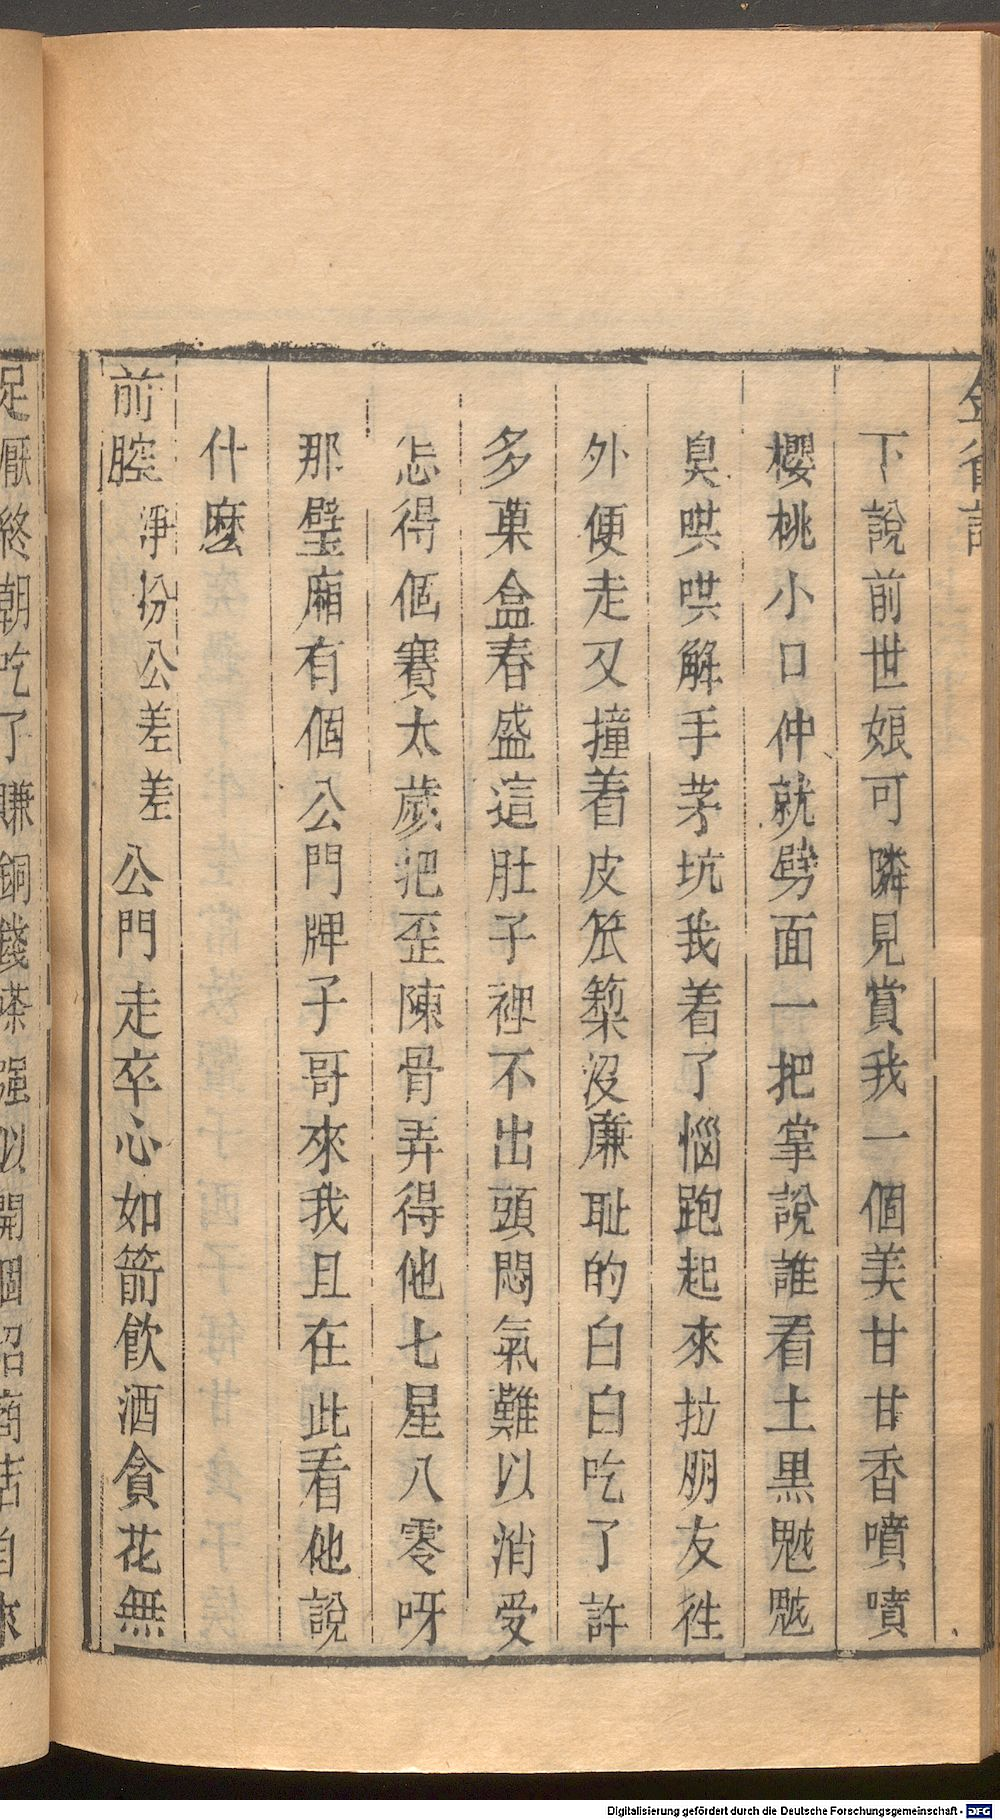 下說前世娘可隣見賞我一個美甘甘香噴噴
櫻桃小口仲就劈面一把掌說誰看土黒魃魃
臭哄哄解手茅坑我着了惱跑起來拉朋友徃
外便走又撞着皮笊篱沒廉耻的白白吃了許
多菓盒春盛這肚子裡不出頭悶氣難以消受
怎得個賽太歲把歪陳骨弄得他七星八零呀
那壁廂有個公門牌子哥來我且在此看他說
什麽
前腔 淨扮公差差 公門走卒心如箭飲酒貪花無
足厭終朝吃了賺銅錢𣘻强似開個招商店自
Digitalisierung gefördert durch die Deutsche Forschungsgemeinschaft - DFG